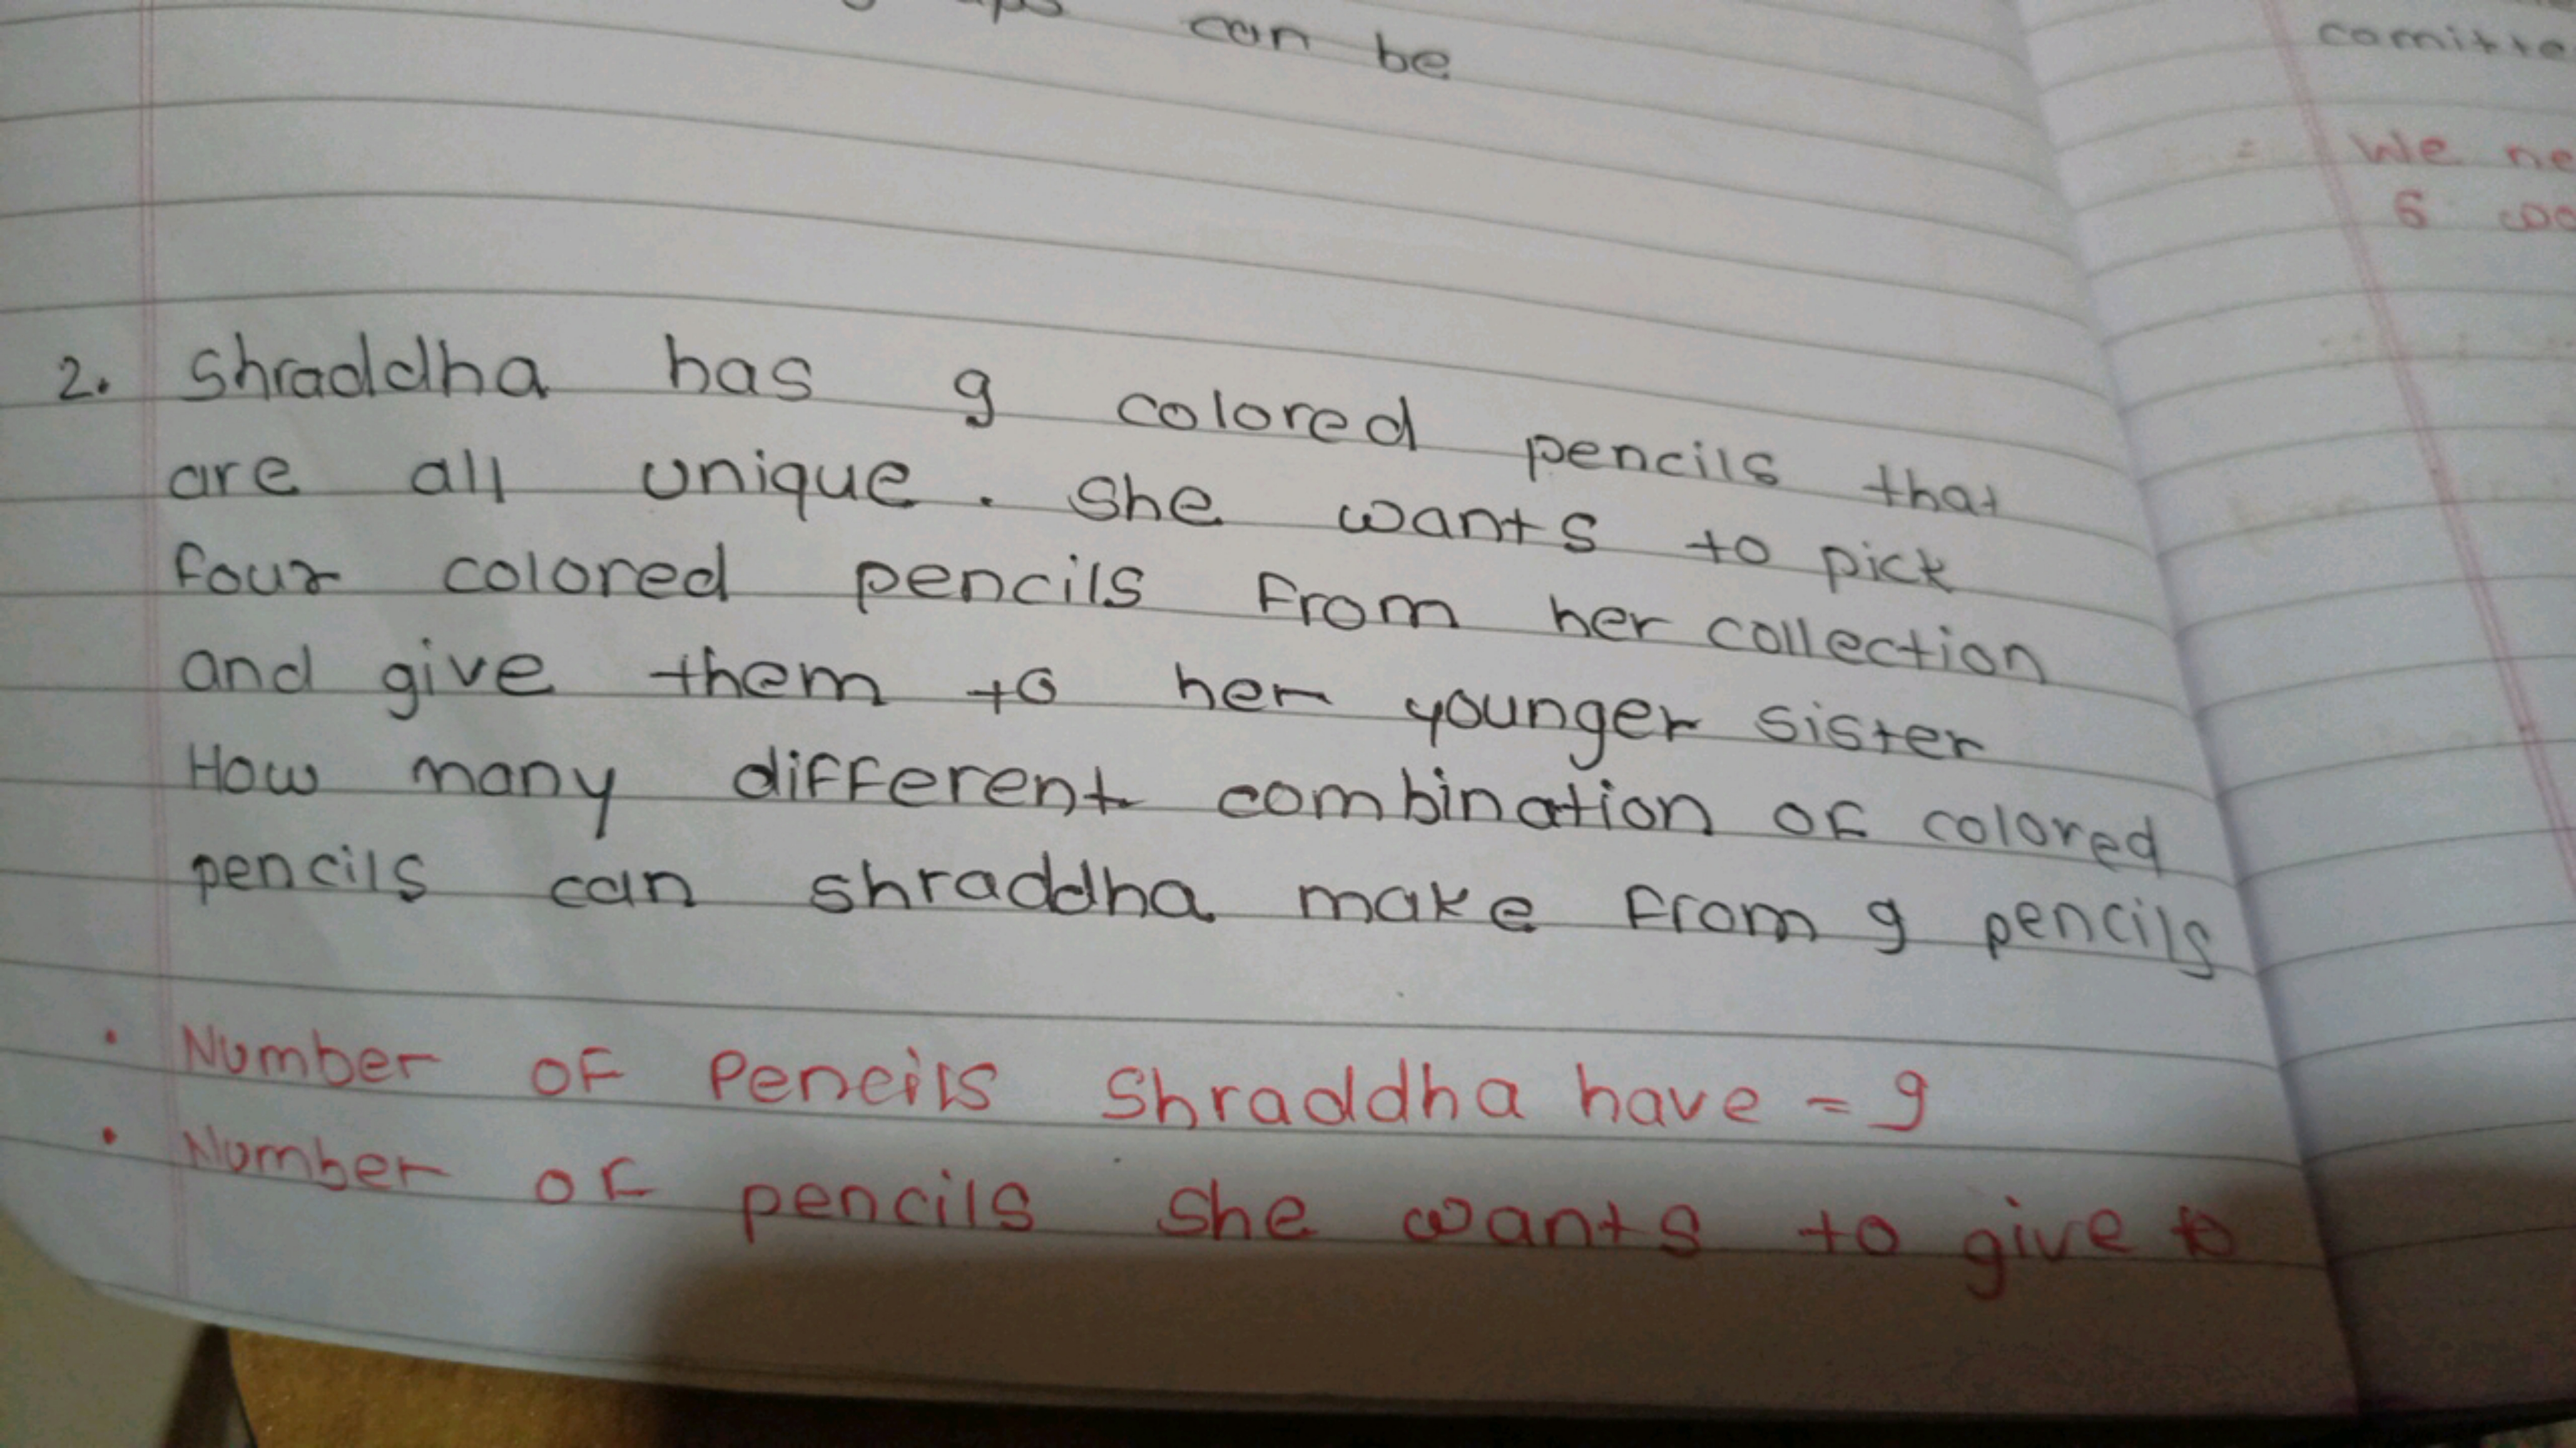 can be
2. Shraddha has 9 colored pencils that
are all unique. She wants to pick
four colored pencils from her collection
and give them to her younger sister
How many different combination of colored
pencils can shraddha make from 9 pencils
• Number of Pencils Shraddha have = 9
• Number of pencils She wants to give to
We
6